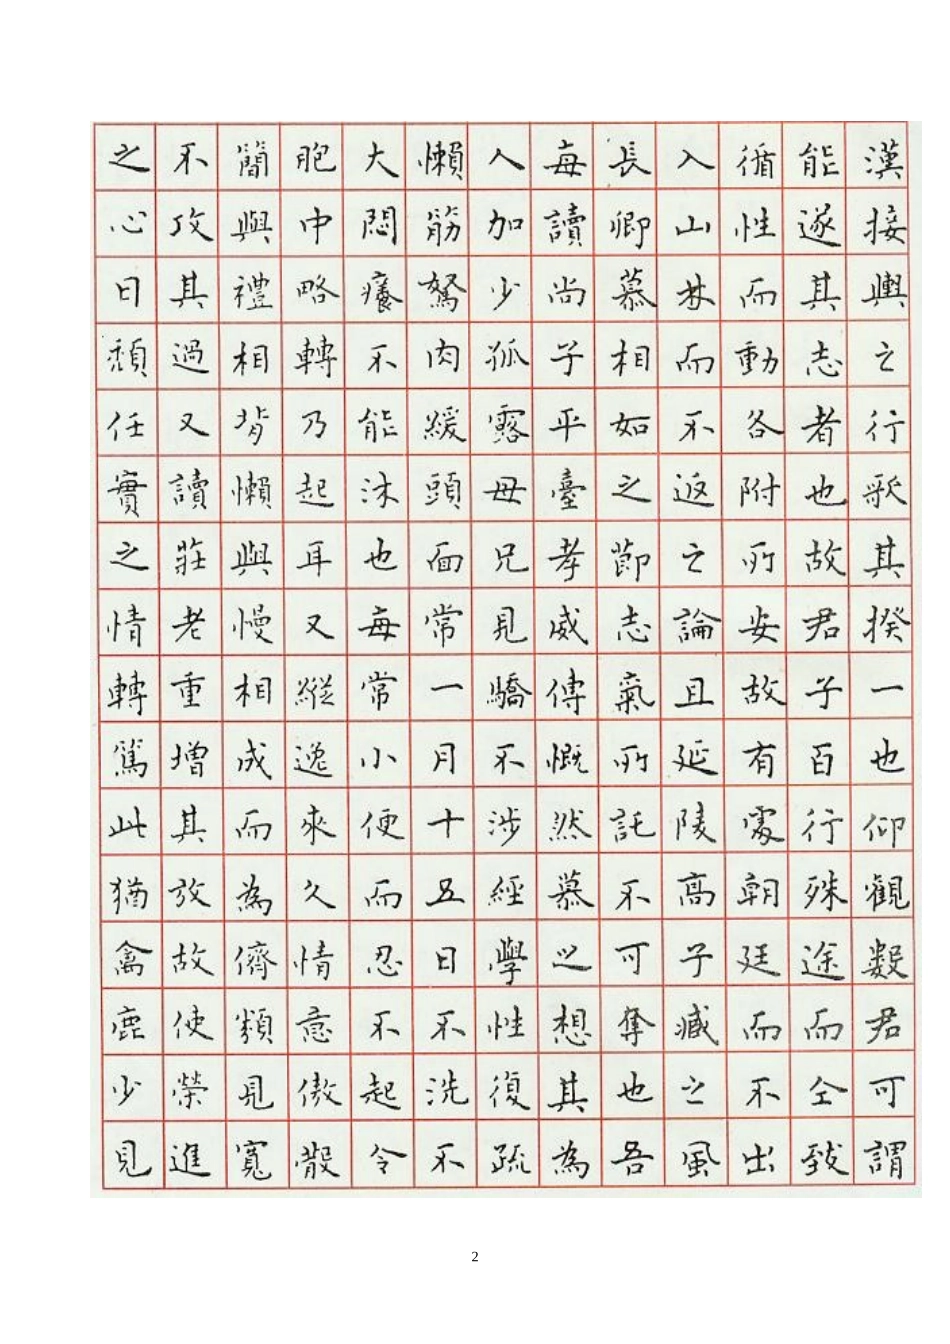 漢接輿之行歌其揆一也仰觀數君可謂
能遂其志者也故君子百行殊途而仝致
循性而動各附所安故有處朝廷而不出
入山林而不返之論且延陵高子臧之風
長卿慕相如之節志氣所託不可奪也吾
每讀尚子平臺孝威傳慨然慕之想其為
人加少孤露母兄見驕不涉經學性復疏
懶筋駑肉緩頭面常一月十五日不洗不
大悶癢不能沐也每常小便而忍不起令
胞中略轉乃起耳又縱逸來久情意傲散
簡與禮相背懶與慢相成而為儕類見寬
不攻其過又讀莊老重增其放故使榮進
之心日頹任實之情轉篤此猶禽鹿少見
2